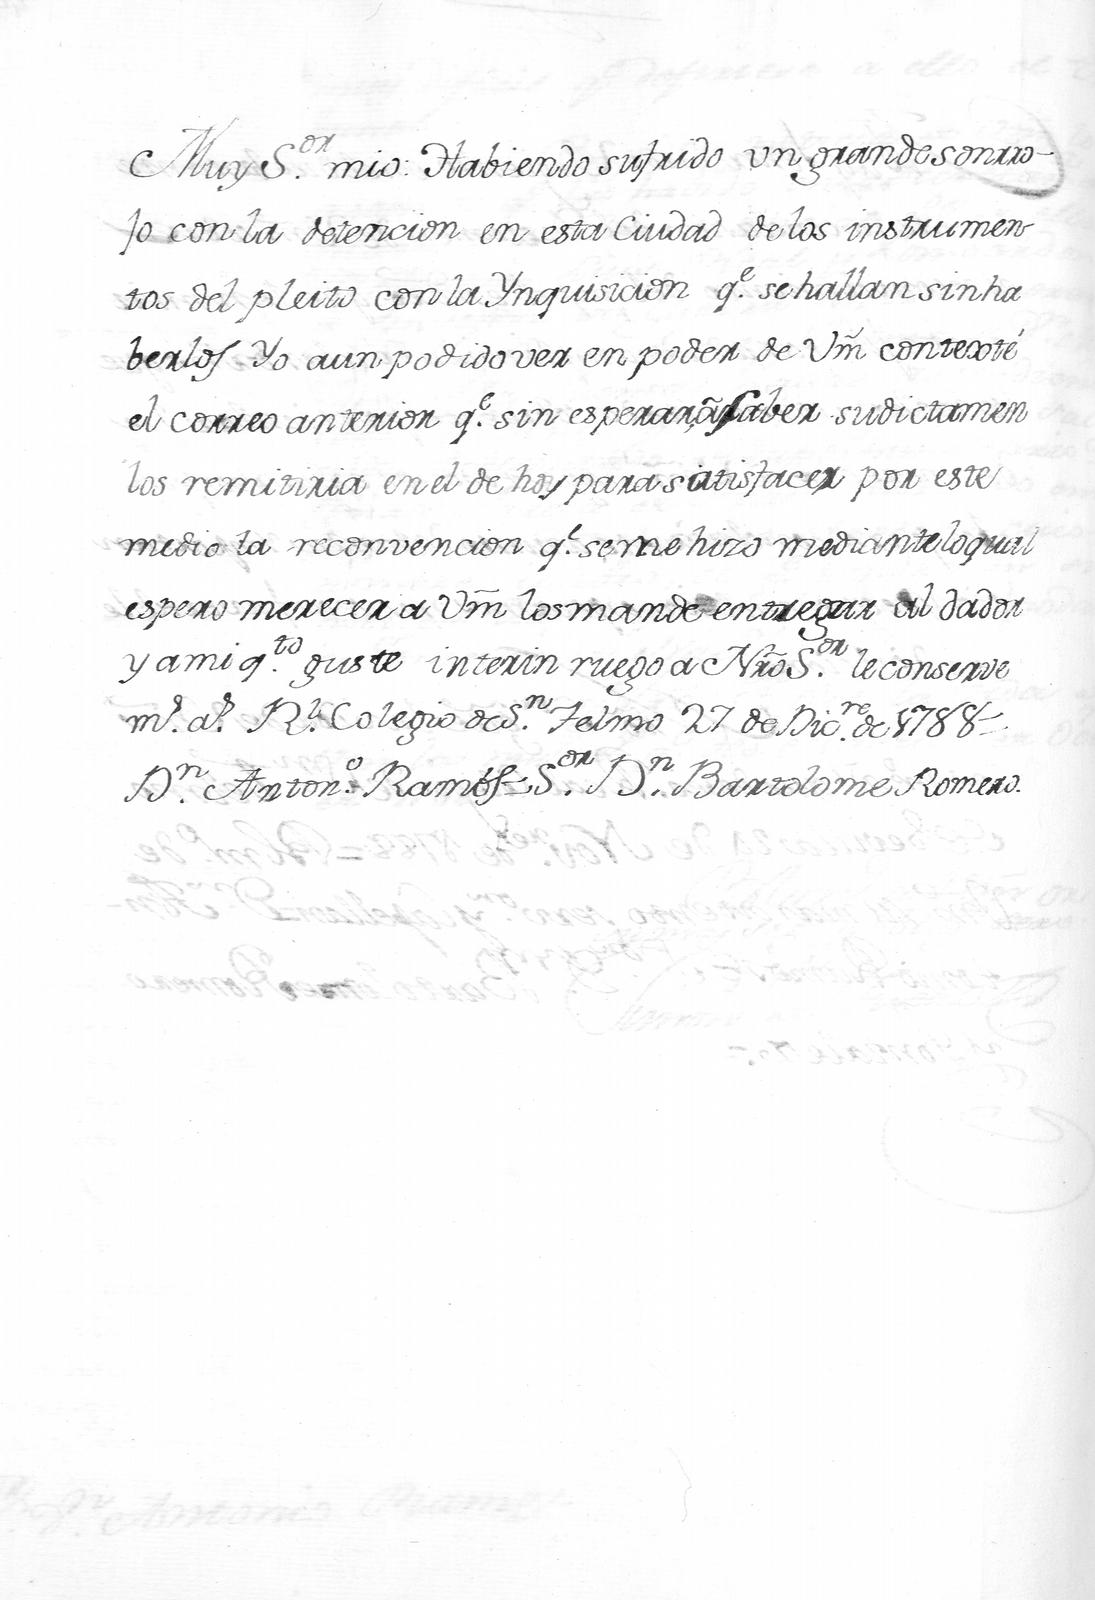 Muy S.or mio: Habiendo sufrido un grande sonrro-
jo con la detencion en esta Ciudad de los instrumen-
tos del pleito con la Ynquisicion q.e se hallan sin ha
berlos Yo aun podido ver en poder de Vm̃ contexté
el correo anterior q.e sin esperar à saber su dictamen
los remitiria en el de hoy para satisfacer por este
medio la reconvencion q.e se me hizo mediante lo qual
espero merecer a Vm̃ los mande entregar al dador
y a mi q.to guste interin ruego a Nr̃o S.or le conserve
m.s a.s R.l Colegio de S.n Telmo 27 de Dic.re de 1788=
D.n Anton.o Ramos= S.or D.n Bartolome Romero.